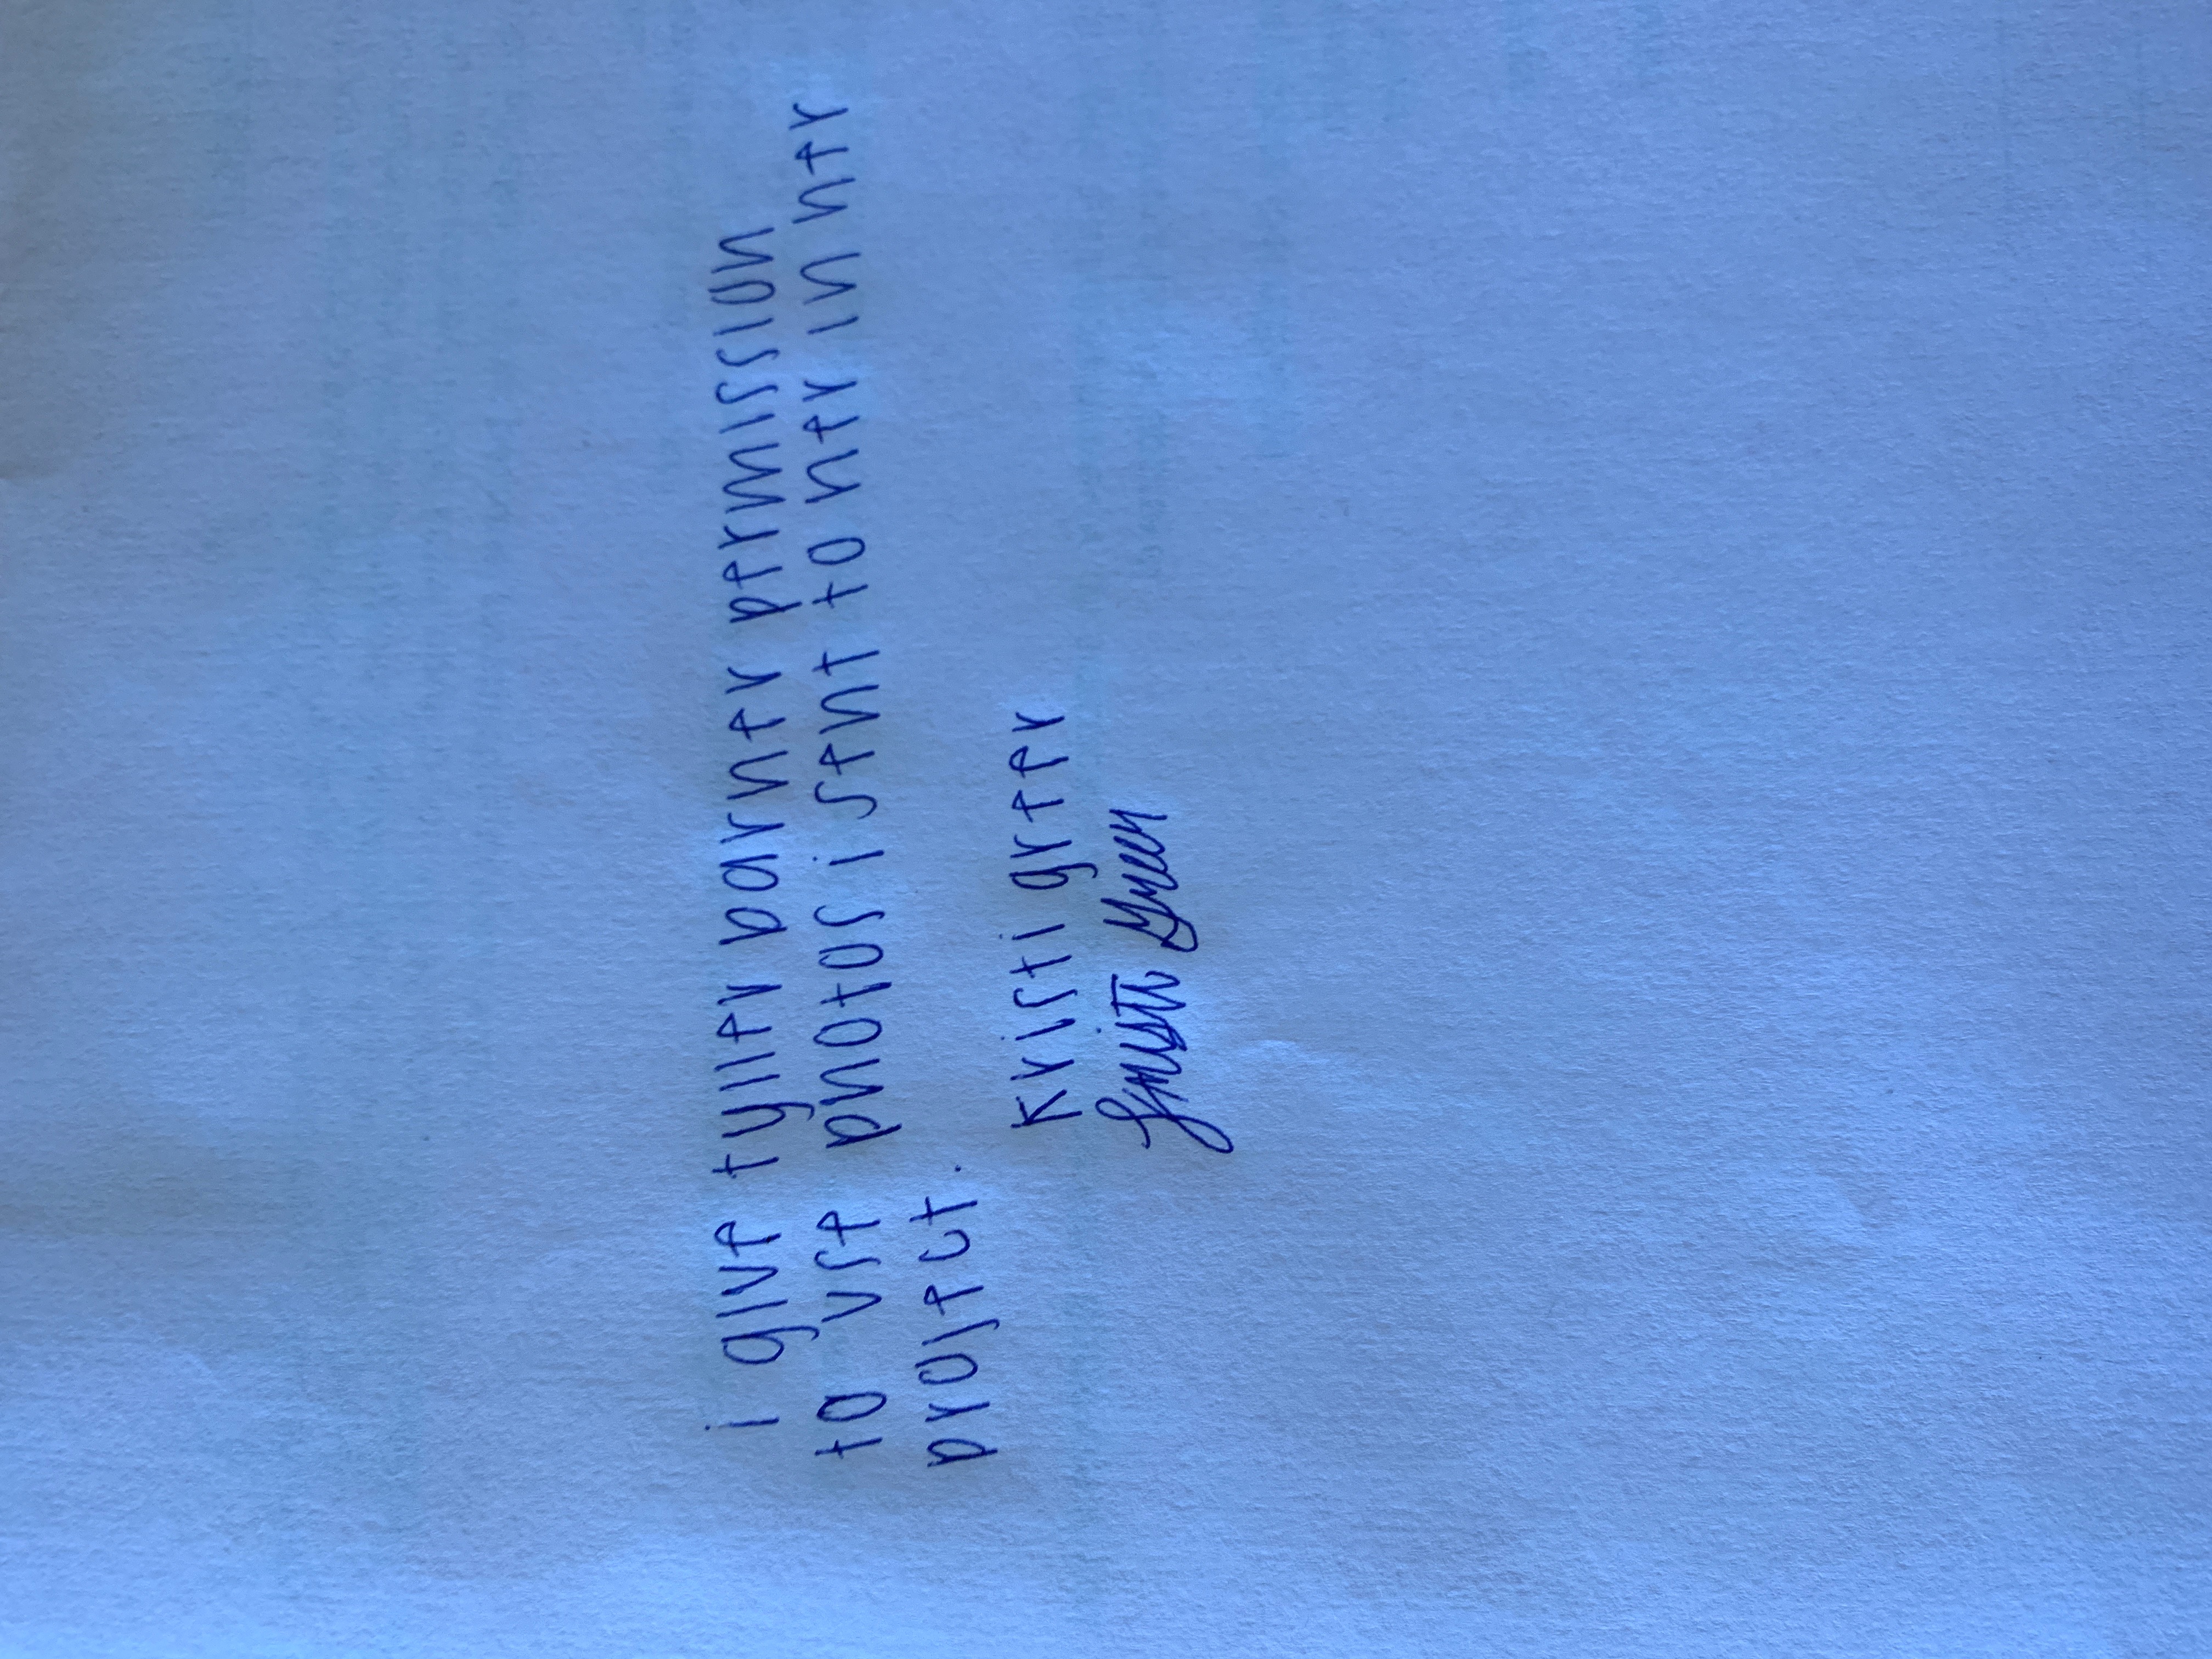 i give tyller barner permission
to use photos i sent to her in her
project.
kristi greer
Kristi Greer